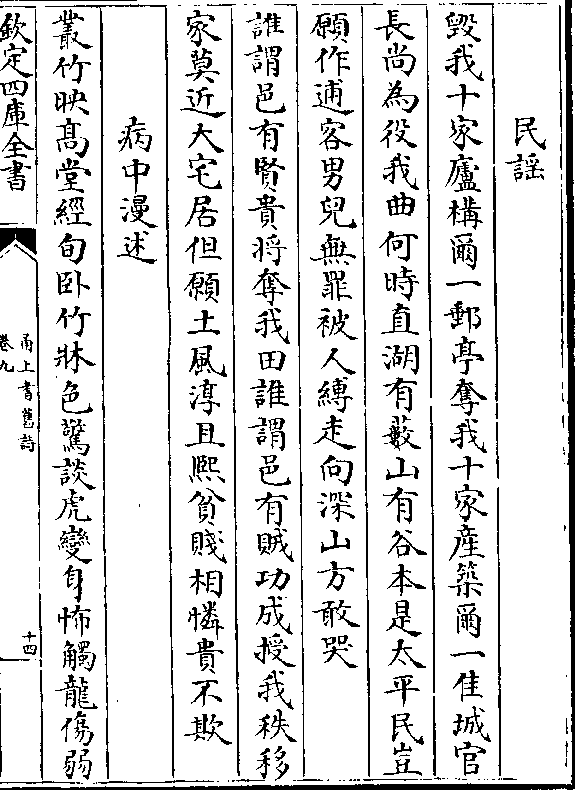 民謡
毀我十家廬構爾一郵亭奪我十家産築爾一佳城官
長尚為役我曲何時直湖有藪山有谷本是太平民豈
願作逋客男兒無罪被人縳走向深山方敢哭
誰謂邑有賢貴將奪我田誰謂邑有賊功成授我秩移
家莫近大宅居但願土風淳且熈貧賤相憐貴不欺
病中漫述
叢竹映髙堂經旬卧竹牀色驚談虎變身怖觸龍傷弱
欽定四庫全書
甬上耆舊詩
卷九
十四